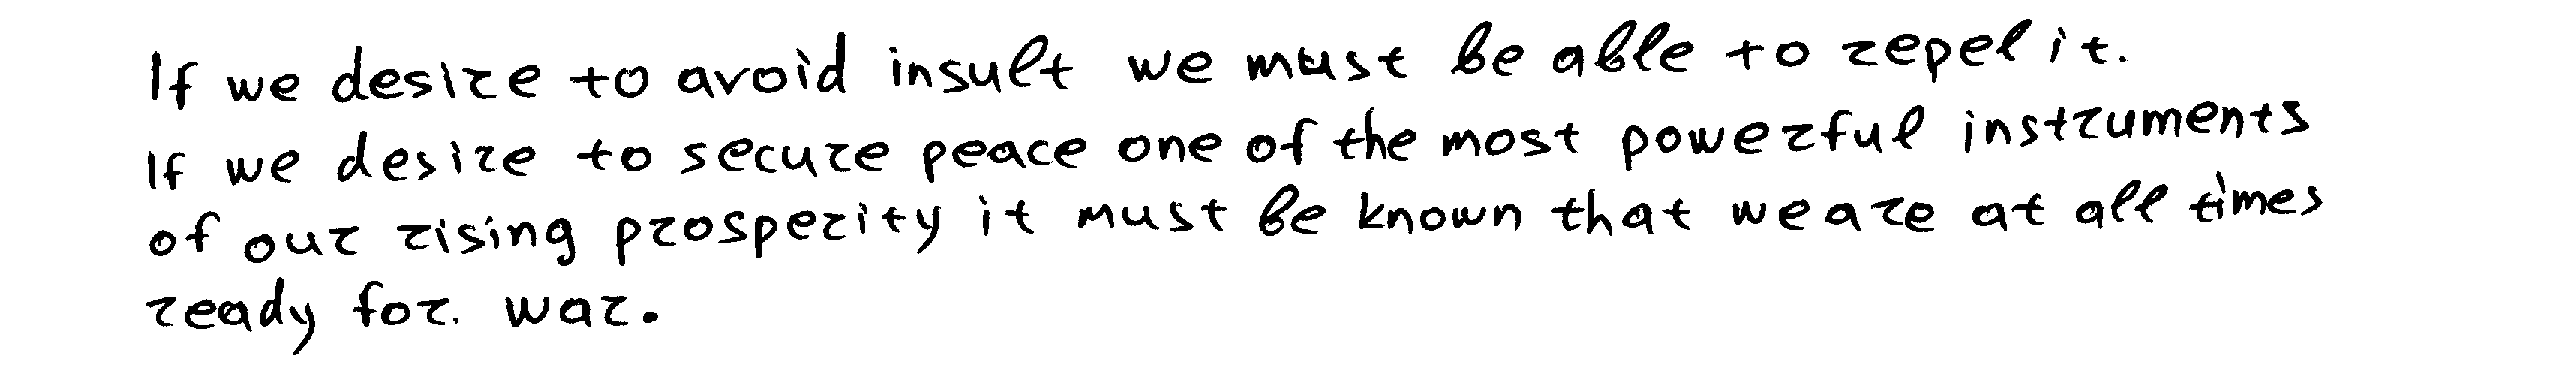 If we desire to avoid insult we must be able to repel it.
If we desire to secure peace one of the most powerful instruments
of our rising prosperity it must be known that we are at all times
ready for. war.